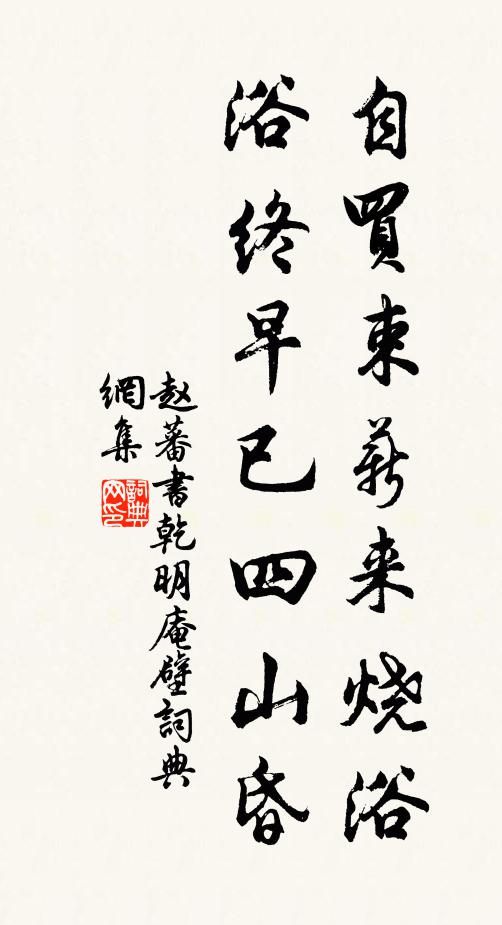 自買束薪来烧浴
浴终早已四山昏
赵蕃書乾明庵壁詞典
網集
詞典網印